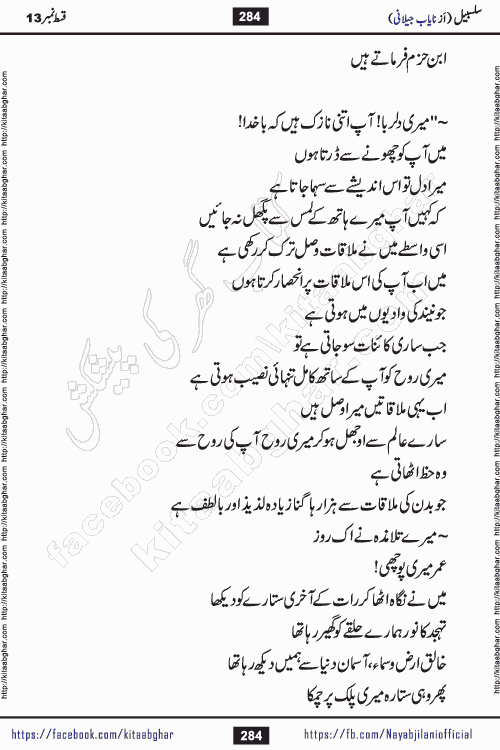 سلسبیل (از نایاب جیلانی)
284
قسط نمبر 13
ابن حزم فرماتے ہیں
~"میری دلربا! آپ اتنی نازک ہیں کہ باخدا!
میں آپ کو چھونے سے ڈرتا ہوں
میرا دل تو اس اندیشے سے سہا جاتا ہے
کہ کہیں آپ میرے ہاتھ کے لمس سے پگھل نہ جائیں
اسی واسطے میں نے ملاقات وصل ترک کر رکھی ہے
میں اب آپ کی اس ملاقات پر انحصار کرتا ہوں
جو نیند کی وادیوں میں ہوتی ہے
جب ساری کائنات سو جاتی ہے تو
میری روح کو آپ کے ساتھ کامل تنہائی نصیب ہوتی ہے
اب یہی ملاقاتیں میرا وصل ہیں
سارے عالم سے اوجھل ہو کر میری روح آپ کی روح سے
وہ حظ اٹھاتی ہے
جو بدن کی ملاقات سے ہزار ہا گنا زیادہ لذیذ اور بالطف ہے
~میرے تلامذہ نے اک روز
عمر میری پوچھی!
میں نے نگاہ اٹھا کر رات کے آخری ستارے کو دیکھا
تہجد کا نور ہمارے حلقے کو گھیر رہا تھا
خالق ارض و سماء، آسمان دنیا سے ہمیں دیکھ رہا تھا
پھر وہی ستارہ میری پلک پر چمکا
https://facebook.com/kitaabghar
284
https://fb.com/Nayabjilaniofficial
http://kitaabghar.com http://kitaabghar.com http://kitaabghar.com http://kitaabghar.com http://kitaabghar.com http://kitaabghar.com
http://kitaabghar.com http://kitaabghar.com http://kitaabghar.com http://kitaabghar.com http://kitaabghar.com http://kitaabghar.com
کتاب گھر کی پیشکش
facebook.com/kitaabghar
kitaabghar.com